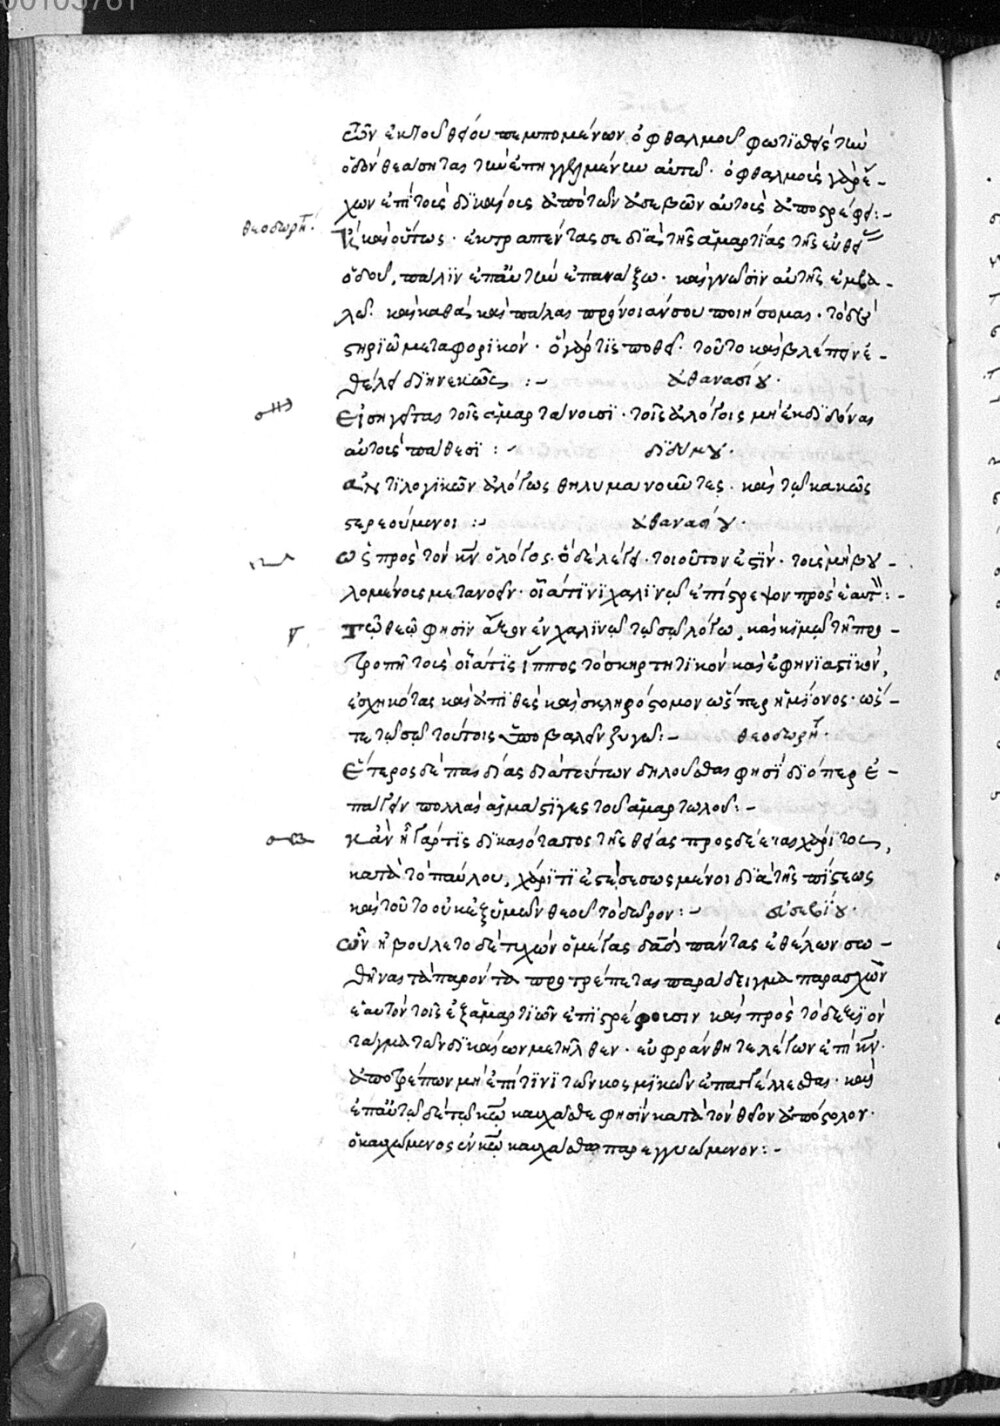 00105761
τῶν ἐκ τοῦ θεοῦ πεμπομένων ὀφθαλμοῦ φωτισθεὶς τὴν
ὁδὸν θεάσηται τὴν ἐπηγγελμένην αὐτῷ· ὀφθαλμοὺς γὰρ ἔ-
χων ἐπὶ τοὺς δικαίους ἀπὸ τῶν ἀσεβῶν αὐτοὺς ἀποστρέφει:-
θεοδωρήτ
καὶ οὕτως· ἐκτραπέντας σε διὰ τῆς ἁμαρτίας τῆς εὐθεί
ὁδοῦ, πάλιν ἐπ' αὐτὴν ἐπανάξω· καὶ γνῶσιν αὐτῆς ἐμβα-
λῶ· καὶ καθὰ καὶ πάλαι πρόνοιάν σου ποιήσομαι· τὸ δὲ
στηριῶ μεταφορικὸν· ὃ γάρ τις ποθεῖ· τοῦτο καὶ βλέπειν ἐ-
θέλει διηνεκῶς :- ἀθανασίου·
Εἰσηγεῖται τοῖς ἁμαρτάνουσι· τοῖς ἀλόγοις μὴ ἐκδιδόναι
αὐτοὺς πάθεσι :- διδύμου·
ἀντιλογικῶν ἀλόγως θηλυμανοῦντες· καὶ τῷ κακῷ
στερεούμενοι :- ἀθανασίου·
ὡς πρὸς τὸν κν ὁ λόγος· ὃ δὲ λέγει· τοιοῦτον ἐστὶν· τοὺς μὴ βου-
λομένους μετανοεῖν· οἷα τινὶ χαλινῷ ἐπίστρεψον πρὸς ἑαυτ:-
τῷ θεῷ φησὶν ἄγξον ἐν χαλινῷ τῷ σῷ λόγῳ, καὶ κημῷ τῇ προ-
τροπῇ τοὺς οἷα τις ἵππος τὸ σκιρτητικὸν καὶ ἀφηνιαστικὸν,
ἐσχηκότας καὶ ἀπειθὲς καὶ σκληρόστομον ὥσπερ ἡμίονος· ὥσ-
τε τῷ σῷ τούτους ὑποβαλεῖν ζυγῷ:- θεοδωρήτ·
Ἑτέρας δὲ παιδίας διὰ τούτων δηλοῦσθαι φησὶ διόπερ ἐ-
πάγειν πολλαὶ αἱ μάστιγες τοῦ ἁμαρτωλοῦ:-
κἂν ᾖ γάρ τις δικαιότατος τῆς θείας προσδέεται χάριτος,
κατὰ τὸ παύλου, χάριτί ἐστε σεσωσμένοι διὰ τῆς πίστεως
καὶ τοῦτο οὐκ ἐξ ὑμῶν θεοῦ τὸ δῶρον:- εὐσεβίου·
ὧν ἠβούλετο δὲ τυχὼν ὁ μέγας δαδ πάντας ἐθέλων σω-
θῆναι τὰ παρόντα προτρέπεται παράδειγμα παρασχὼν
ἑαυτὸν τοῖς ἐξ ἁμαρτιῶν ἐπιστρέφουσιν καὶ πρὸς τὸ δεξιὸν
τάγμα τῶν δικαίων μετῆλθεν· εὐφράνθητε λέγων ἐπὶ κν·
ἀποτρέπων μὴ ἐπί τινι τῶν κοσμικῶν ἐπαγγέλλεσθαι· καὶ
ἐπ' αὐτῷ δὲ τῷ κω καυχᾶσθε φησὶν κατὰ τὸν θεῖον ἀπόστολον·
ὁ καυχώμενος ἐν κω καυχάσθω παρεγγυώμενον:-